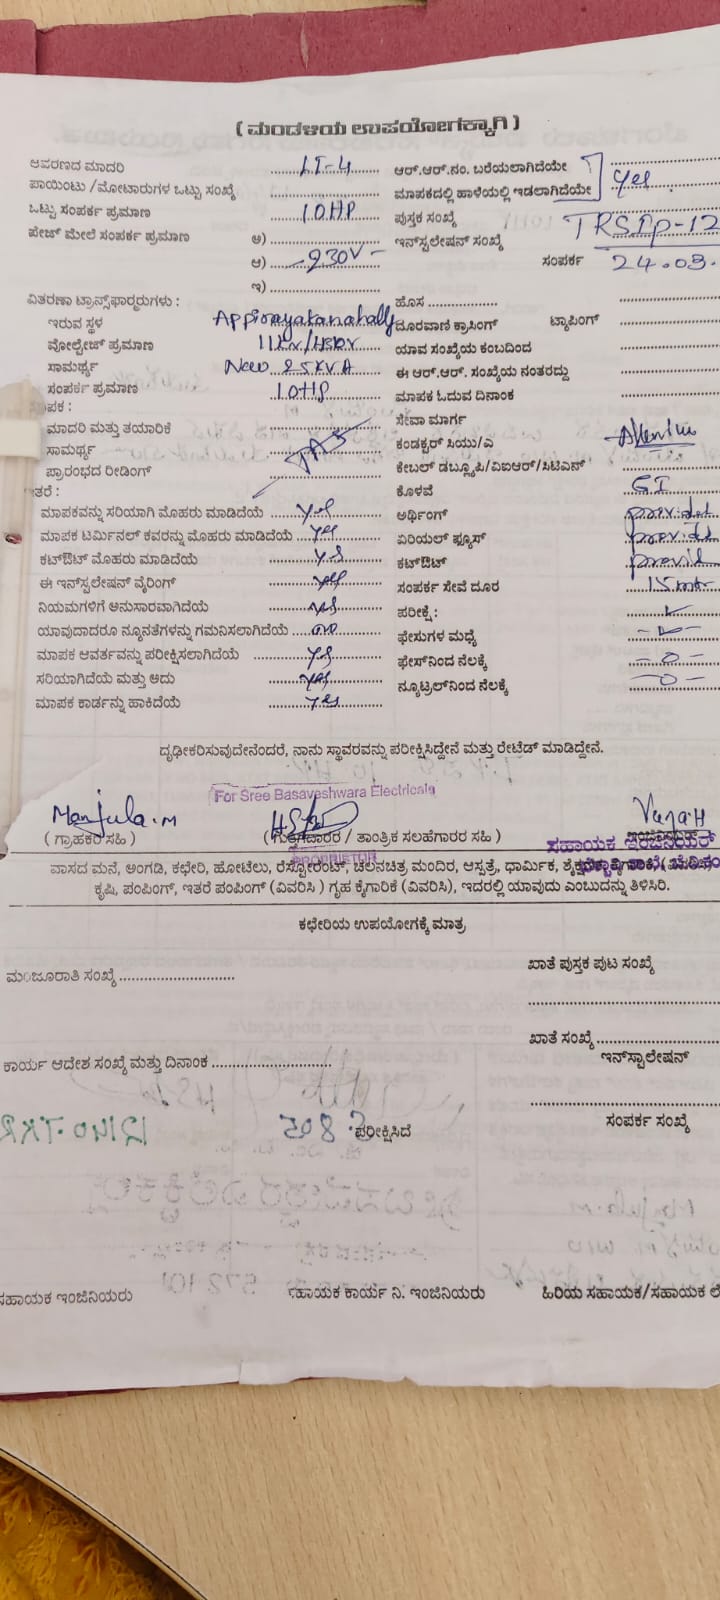 ( ಮಂಡಳಿಯ ಉಪಯೋಗಕ್ಕಾಗಿ )
ಆವರಣದ ಮಾದರಿ LT-4 ಆರ್.ಆರ್.ನಂ. ಬರೆಯಲಾಗಿದೆಯೇ
ಪಾಯಿಂಟು /ಮೋಟಾರುಗಳ ಒಟ್ಟು ಸಂಖ್ಯೆ ಮಾಪಕದಲ್ಲಿ ಹಾಳೆಯಲ್ಲಿ ಇಡಲಾಗಿದೆಯೇ yes
ಒಟ್ಟು ಸಂಪರ್ಕ ಪ್ರಮಾಣ 10HP ಪುಸ್ತಕ ಸಂಖ್ಯೆ
ಪೇಜ್ ಮೇಲೆ ಸಂಪರ್ಕ ಪ್ರಮಾಣ ಅ) ಇನ್‌ಸ್ಟಲೇಷನ್ ಸಂಖ್ಯೆ TRSIp-12
ಆ) 230V ಸಂಪರ್ಕ 24.03.
ಇ)
ವಿತರಣಾ ಟ್ರಾನ್ಸ್‌ಫಾರ್ಮರುಗಳು : ಹೊಸ
ಇರುವ ಸ್ಥಳ Appinayakanahally ದೂರವಾಣಿ ಕ್ರಾಸಿಂಗ್ ಟ್ಯಾಪಿಂಗ್
ವೋಲ್ಟೇಜ್ ಪ್ರಮಾಣ ಯಾವ ಸಂಖ್ಯೆಯ ಕಂಬದಿಂದ
ಸಾಮರ್ಥ್ಯ New 25KVA ಈ ಆರ್.ಆರ್. ಸಂಖ್ಯೆಯ ನಂತರದ್ದು
ಸಂಪರ್ಕ ಪ್ರಮಾಣ 10HP ಮಾಪಕ ಓದುವ ದಿನಾಂಕ
ಸೇವಾ ಮಾರ್ಗ
ಮಾದರಿ ಮತ್ತು ತಯಾರಿಕೆ ಕಂಡಕ್ಟರ್ ಸಿಯು/ಎ
ಸಾಮರ್ಥ್ಯ ಕೇಬಲ್ ಡಬ್ಲ್ಯೂಪಿ/ವಿಐಆರ್/ಸಿಟಿಎನ್
ಪ್ರಾರಂಭದ ರೀಡಿಂಗ್ ಕೊಳವೆ GI
ಮಾಪಕವನ್ನು ಸರಿಯಾಗಿ ಮೊಹರು ಮಾಡಿದೆಯೆ yes ಅರ್ಥಿಂಗ್ provided
ಮಾಪಕ ಟರ್ಮಿನಲ್ ಕವರನ್ನು ಮೊಹರು ಮಾಡಿದೆಯೆ yes ಏರಿಯಲ್ ಫ್ಯೂಸ್ provided
ಕಟ್‌ಔಟ್ ಮೊಹರು ಮಾಡಿದೆಯೆ yes ಕಟ್‌ಔಟ್ provid
ಈ ಇನ್‌ಸ್ಟಲೇಷನ್ ವೈರಿಂಗ್ yes ಸಂಪರ್ಕ ಸೇವೆ ದೂರ 15 mtr
ನಿಯಮಗಳಿಗೆ ಅನುಸಾರವಾಗಿದೆಯೆ yes ಪರೀಕ್ಷೆ :
ಯಾವುದಾದರೂ ನ್ಯೂನತೆಗಳನ್ನು ಗಮನಿಸಲಾಗಿದೆಯೆ no ಫೇಸುಗಳ ಮಧ್ಯೆ
ಮಾಪಕ ಆವರ್ತವನ್ನು ಪರೀಕ್ಷಿಸಲಾಗಿದೆಯೆ yes ಫೇಸ್‌ನಿಂದ ನೆಲಕ್ಕೆ -0-
ಸರಿಯಾಗಿದೆಯೆ ಮತ್ತು ಅದು yes ನ್ಯೂಟ್ರಲ್‌ನಿಂದ ನೆಲಕ್ಕೆ -0-
ಮಾಪಕ ಕಾರ್ಡನ್ನು ಹಾಕಿದೆಯೆ yes
ದೃಢೀಕರಿಸುವುದೇನೆಂದರೆ, ನಾನು ಸ್ಥಾವರವನ್ನು ಪರೀಕ್ಷಿಸಿದ್ದೇನೆ ಮತ್ತು ರೇಟೆಡ್ ಮಾಡಿದ್ದೇನೆ.
For Sree Basaveshwara Electricals
Manjula.M
( ಗ್ರಾಹಕರ ಸಹಿ ) ( ಗುತ್ತಿಗೆದಾರರ / ತಾಂತ್ರಿಕ ಸಲಹೆಗಾರರ ಸಹಿ ) ಸಹಾಯಕ ಇಂಜಿನಿಯರ್
PROPRIETOR
ವಾಸದ ಮನೆ, ಅಂಗಡಿ, ಕಛೇರಿ, ಹೋಟೆಲು, ರೆಸ್ಟೋರೆಂಟ್, ಚಲನಚಿತ್ರ ಮಂದಿರ, ಆಸ್ಪತ್ರೆ, ಧಾರ್ಮಿಕ,
ಕೃಷಿ, ಪಂಪಿಂಗ್, ಇತರೆ ಪಂಪಿಂಗ್ (ವಿವರಿಸಿ ) ಗೃಹ ಕೈಗಾರಿಕೆ (ವಿವರಿಸಿ), ಇದರಲ್ಲಿ ಯಾವುದು ಎಂಬುದನ್ನು ತಿಳಿಸಿರಿ.
ಕಛೇರಿಯ ಉಪಯೋಗಕ್ಕೆ ಮಾತ್ರ
ಮಂಜೂರಾತಿ ಸಂಖ್ಯೆ ಖಾತೆ ಪುಸ್ತಕ ಪುಟ ಸಂಖ್ಯೆ
ಖಾತೆ ಸಂಖ್ಯೆ
ಕಾರ್ಯ ಆದೇಶ ಸಂಖ್ಯೆ ಮತ್ತು ದಿನಾಂಕ ಇನ್‌ಸ್ಟಾಲೇಷನ್
ಪರೀಕ್ಷಿಸಿದೆ ಸಂಪರ್ಕ ಸಂಖ್ಯೆ
ಸಹಾಯಕ ಇಂಜಿನಿಯರು ಸಹಾಯಕ ಕಾರ್ಯ ನಿ. ಇಂಜಿನಿಯರು ಹಿರಿಯ ಸಹಾಯಕ/ಸಹಾಯಕ